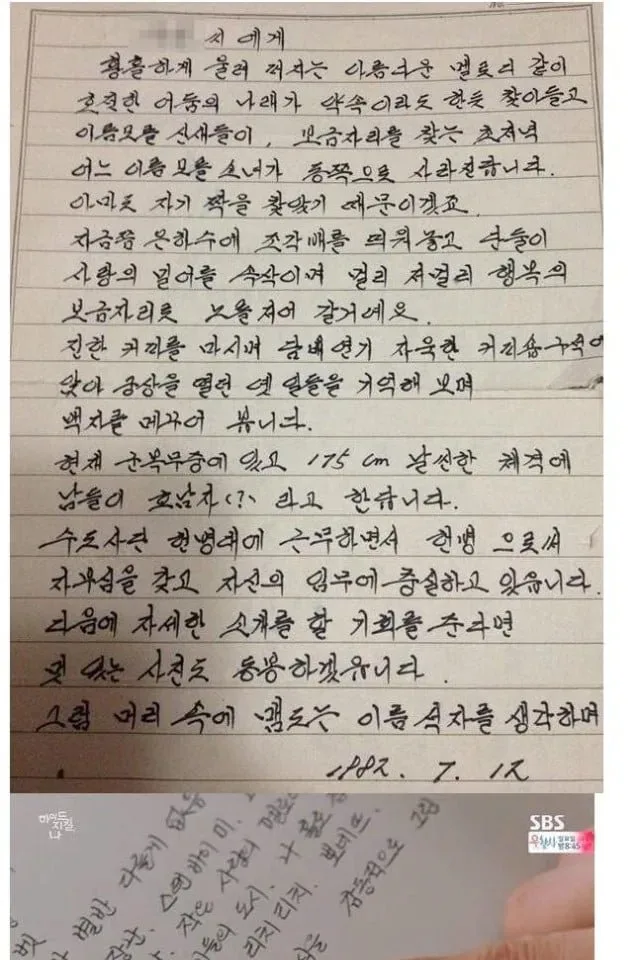 씨 에게
황홀하게 울려 퍼지는 아름다운 멜로디 같이
호젓한 어둠의 나래가 약속이라도 한듯 찾아들고
이름모를 산새들이, 보금자리를 찾는 초저녁
어느 이름 모를 소녀가 동쪽으로 사라진답니다.
아마도 자기 짝을 찾았기 때문이겠죠.
지금쯤 은하수에 조각배를 띄워놓고 단둘이
사랑의 밀어를 속삭이며 멀리 저멀리 행복의
보금자리로 노를저어 갈거예요.
진한 커피를 마시며 담배연기 자욱한 커피숍구석에
앉아 궁상을 떨던 옛 일들을 기억해 보며
백지를 메꾸어 봅니다.
현재 군복무중에 있고 175 cm 날씬한 체격에
남들이 호남자(?) 라고 한답니다.
수도사단 헌병대에 근무하면서 헌병 으로써
자부심을 갖고 자신의 임무에 충실하고 있읍니다.
다음에 자세한 소개를 할 기회를 준다면
멋 있는 사진도 동봉하겠읍니다.
그럼 머리 속에 맴도는 이름 석자를 생각하며
1982. 7. 12
하이드
지킬,
나
SBS
일요일
밤8:45
별반 다를게 없음
작은 사람의 멜로
들의 도시. 나 홀로
리치리치. 포데쓰.
감동적으로 그림